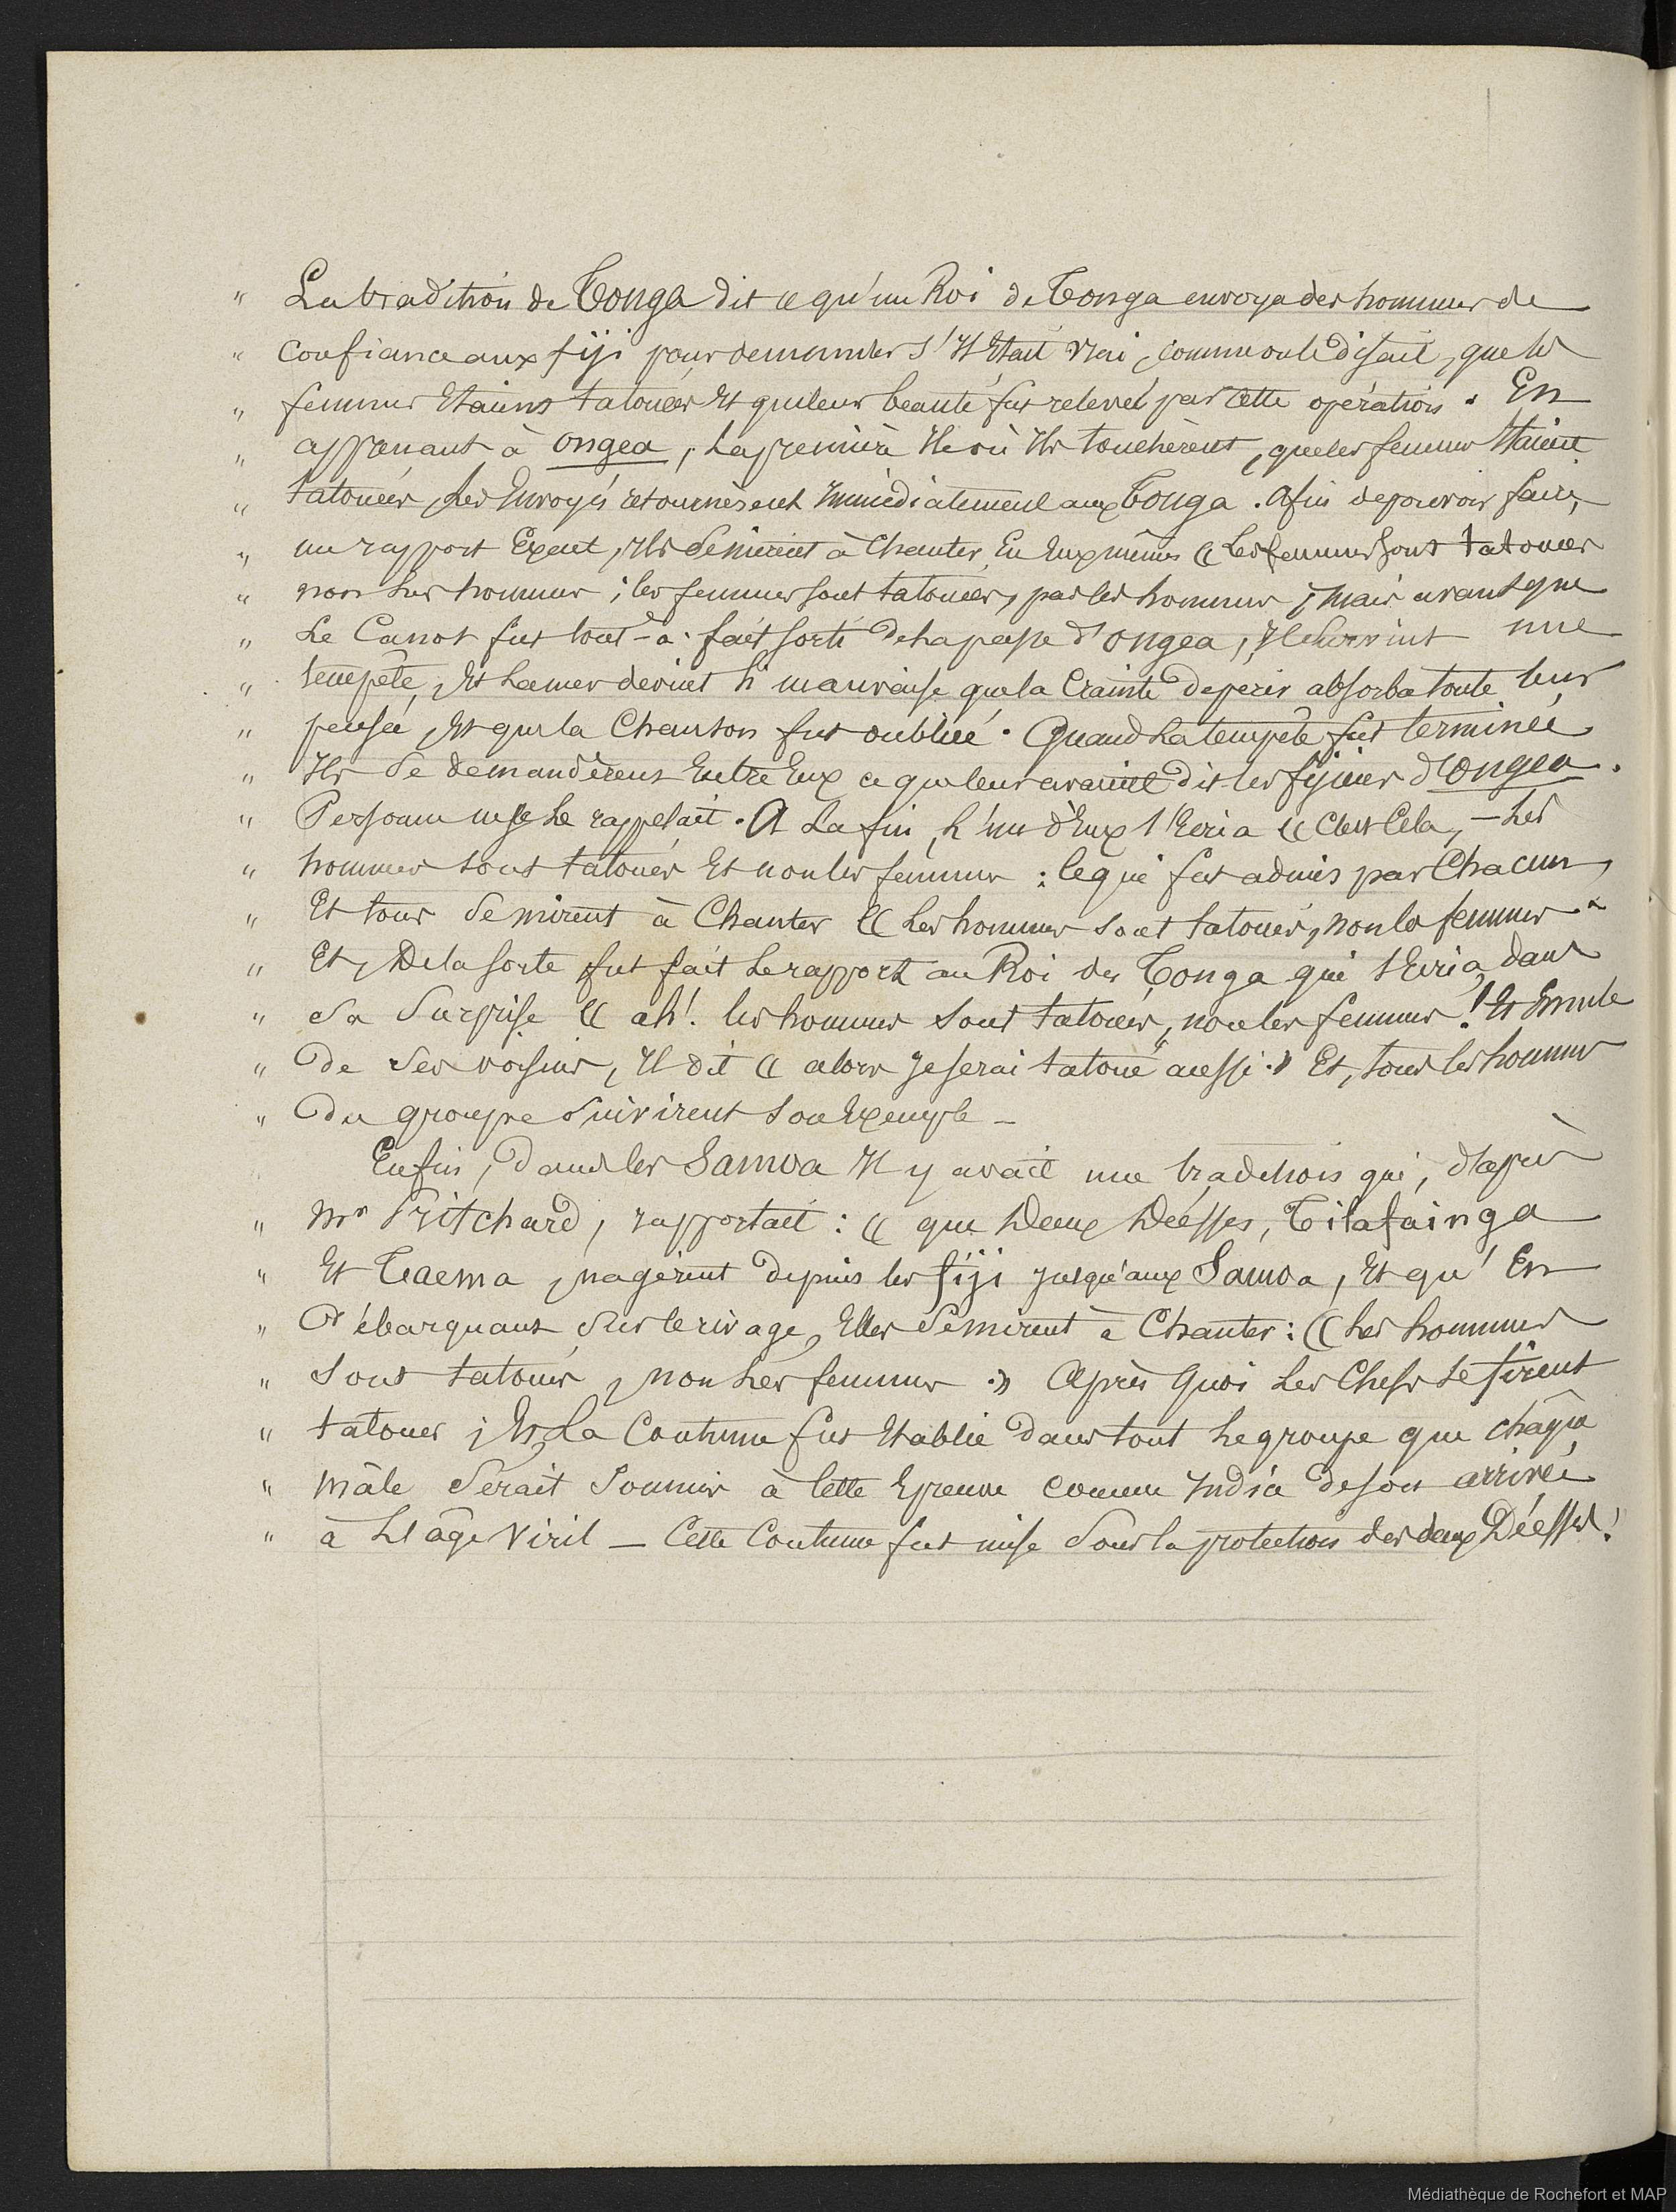 " La tradition de Tonga dit « qu'un Roi de Tonga envoya des hommes de
" confiance aux fiji pour demander s'Il Etait vrai, comme on le disait, que les
" femmes Etaient tatouées Et que leur beauté fut relevée par cette opération. En
" apprenant à Ongea, La première Ile où Ils touchèrent, que les femmes Etaient
" tatouées, Les Envoyés retournèrent Immédiatement aux Tonga. Afin de pouvoir faire,
" un rapport Exact, Ils se mirent à Chanter En Eux mêmes « Les femmes sont tatouées
" non Les hommes ; les femmes sont tatouées, pas les hommes ; Mais avant que
" Le Canot fut tout-à-fait sorti de la passe d'Ongea, Il survint une
" tempête, Et La mer devint si mauvaise que la Crainte de perir absorba toute leur
" pensée, Et que la Chanson fut oubliée. Quand La tempête fut terminée
" Ils se demandèrent Entre Eux ce que leur avaient dit les fijiens d'Ongea.
" Personne ne se le rappelait. A La fin, L'un d'Eux s'Ecria « C'est Cela, — Les
" hommes sont tatoués Et non les femmes : Ce qui fut admis par Chacun,
" Et tous se mirent à Chanter « Les hommes sont tatoués, non les femmes "
" Et, De la sorte fut fait Le rapport au Roi des Tonga qui s'Ecria, dans
" sa surprise « ah! les hommes sont tatoués, non les femmes ! " Et Emule
" De ses voisins, Il dit « alors Je serai tatoué aussi. » Et, tous les hommes
" Du groupe suivirent son Exemple —
Enfin, Dans les Samoa Il y avait une tradition qui, d'après
" Mr Pritchard, rapportait : « que Deux Déesses, Tilafainga
" Et Taema, nagèrent depuis les fiji Jusqu'aux Samoa, Et qu'En
" Débarquant sur le rivage, Elles se mirent à Chanter : « Les hommes
" sont tatoués, non Les femmes .» Après Quoi Les Chefs se firent
" tatouer ; Et La Coutume fut Etablie Dans tout Le groupe que chaque
" mâle serait soumis à Cette Epreuve comme Indice de son arrivée
" à L'âge Viril — Cette Coutume fut mise sous la protection des deux Déesses.
Médiathèque de Rochefort et MAP